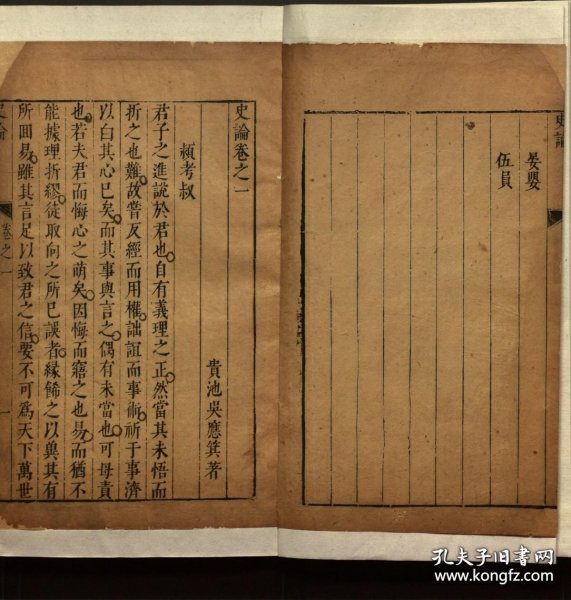 史論
晏嬰
伍員
史論卷之一
貴池吳應箕著
潁考叔
君子之進說於君也自有義理之正然當其未悟而
折之也難故嘗反經而用權詘詎而事術祈于事濟
以白其心已矣而其事與言之偶有未當也可毋責
也若夫君而悔心之萌矣因悔而寤之也易而猶不
能據理折繆徒取向之所已誤者緣餙之以與其有
所囬易雖其言足以致君之信要不可爲天下萬世
史論
卷之一
一
孔夫子旧书网
www.kongfz.com